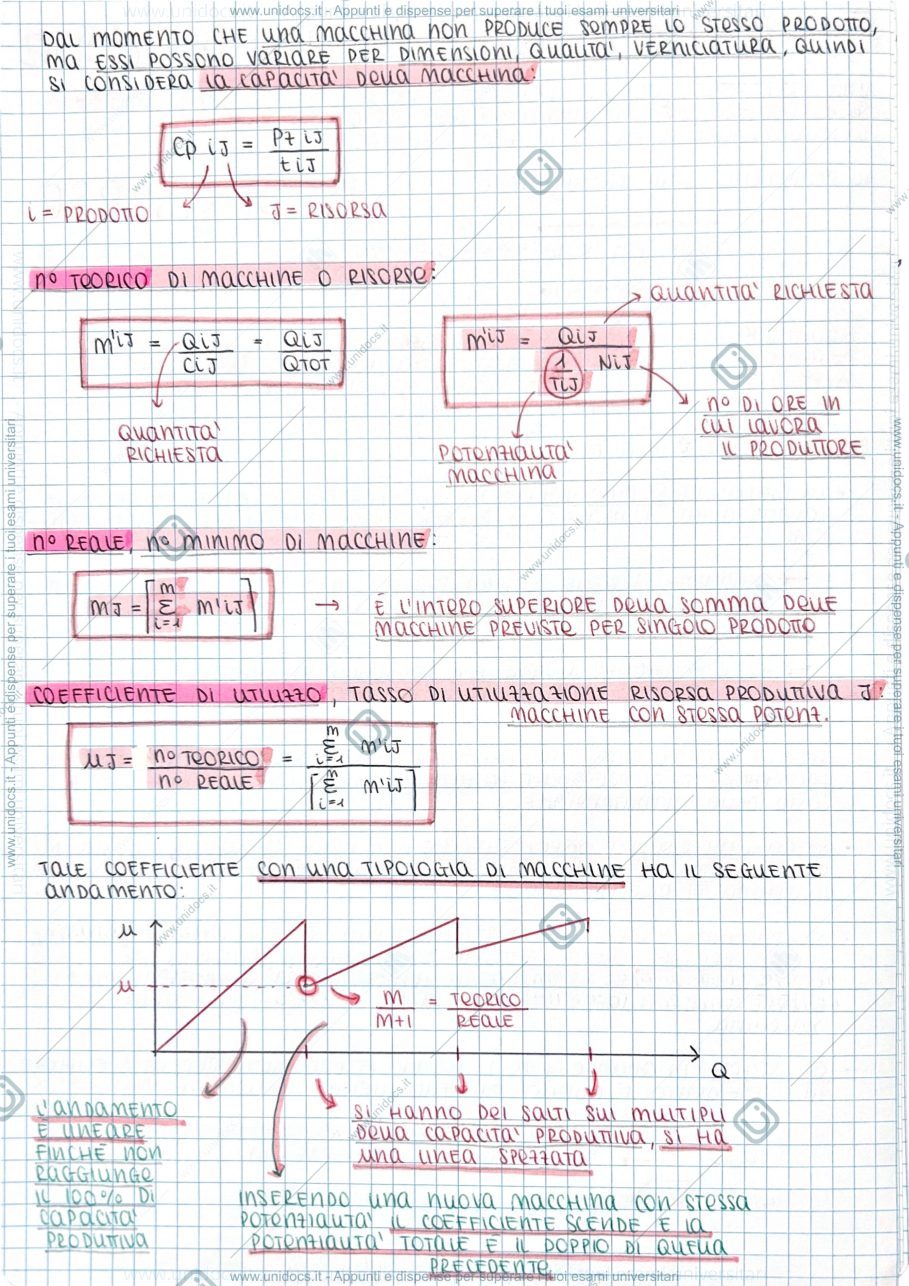 www.unidocs.it - Appunti e dispense per superare i tuoi esami universitari
DAL MOMENTO CHE UNA MACCHINA NON PRODUCE SEMPRE LO STESSO PRODOTTO,
MA ESSI POSSONO VARIARE PER DIMENSIONI, QUALITA', VERNICIATURA, QUINDI
SI CONSIDERA LA CAPACITA' DELLA MACCHINA:
Cp iJ = Pz iJ / t iJ
i = PRODOTTO J = RISORSA
n° TEORICO DI MACCHINE O RISORSE:
QUANTITA' RICHIESTA
m'iJ = QiJ / CiJ = QiJ / QTOT
m'iJ = QiJ / (1/TiJ) NiJ
QUANTITA'
RICHIESTA
POTENZIALITA'
MACCHINA
n° DI ORE IN
CUI LAVORA
IL PRODUTTORE
n° REALE, n° MINIMO DI MACCHINE:
MJ = ⌈ m Σ i=1 m'iJ ⌉ → È L'INTERO SUPERIORE DELLA SOMMA DELLE
MACCHINE PREVISTE PER SINGOLO PRODOTTO
COEFFICIENTE DI UTILIZZO, TASSO DI UTILIZZAZIONE RISORSA PRODUTTIVA J:
MACCHINE CON STESSA POTENZ.
μJ = n° TEORICO / n° REALE = m Σ i=1 m'iJ / ⌈ m Σ i=1 m'iJ ⌉
TALE COEFFICIENTE CON UNA TIPOLOGIA DI MACCHINE HA IL SEGUENTE
ANDAMENTO:
μ
μ
M / M+1 = TEORICO / REALE
Q
L'ANDAMENTO
È LINEARE
FINCHÈ NON
RAGGIUNGE
IL 100% DI
CAPACITA'
PRODUTTIVA
SI HANNO DEI SALTI SUI MULTIPLI
DELLA CAPACITA' PRODUTTIVA, SI HA
UNA LINEA SPEZZATA
INSERENDO UNA NUOVA MACCHINA CON STESSA
POTENZIALITA' IL COEFFICIENTE SCENDE E LA
POTENZIALITA' TOTALE È IL DOPPIO DI QUELLA
PRECEDENTE
www.unidocs.it - Appunti e dispense per superare i tuoi esami universitari
www.unidocs.it - Appunti e dispense per superare i tuoi esami universitari
www.unidocs.it - Appunti e dispense per superare i tuoi esami universitari